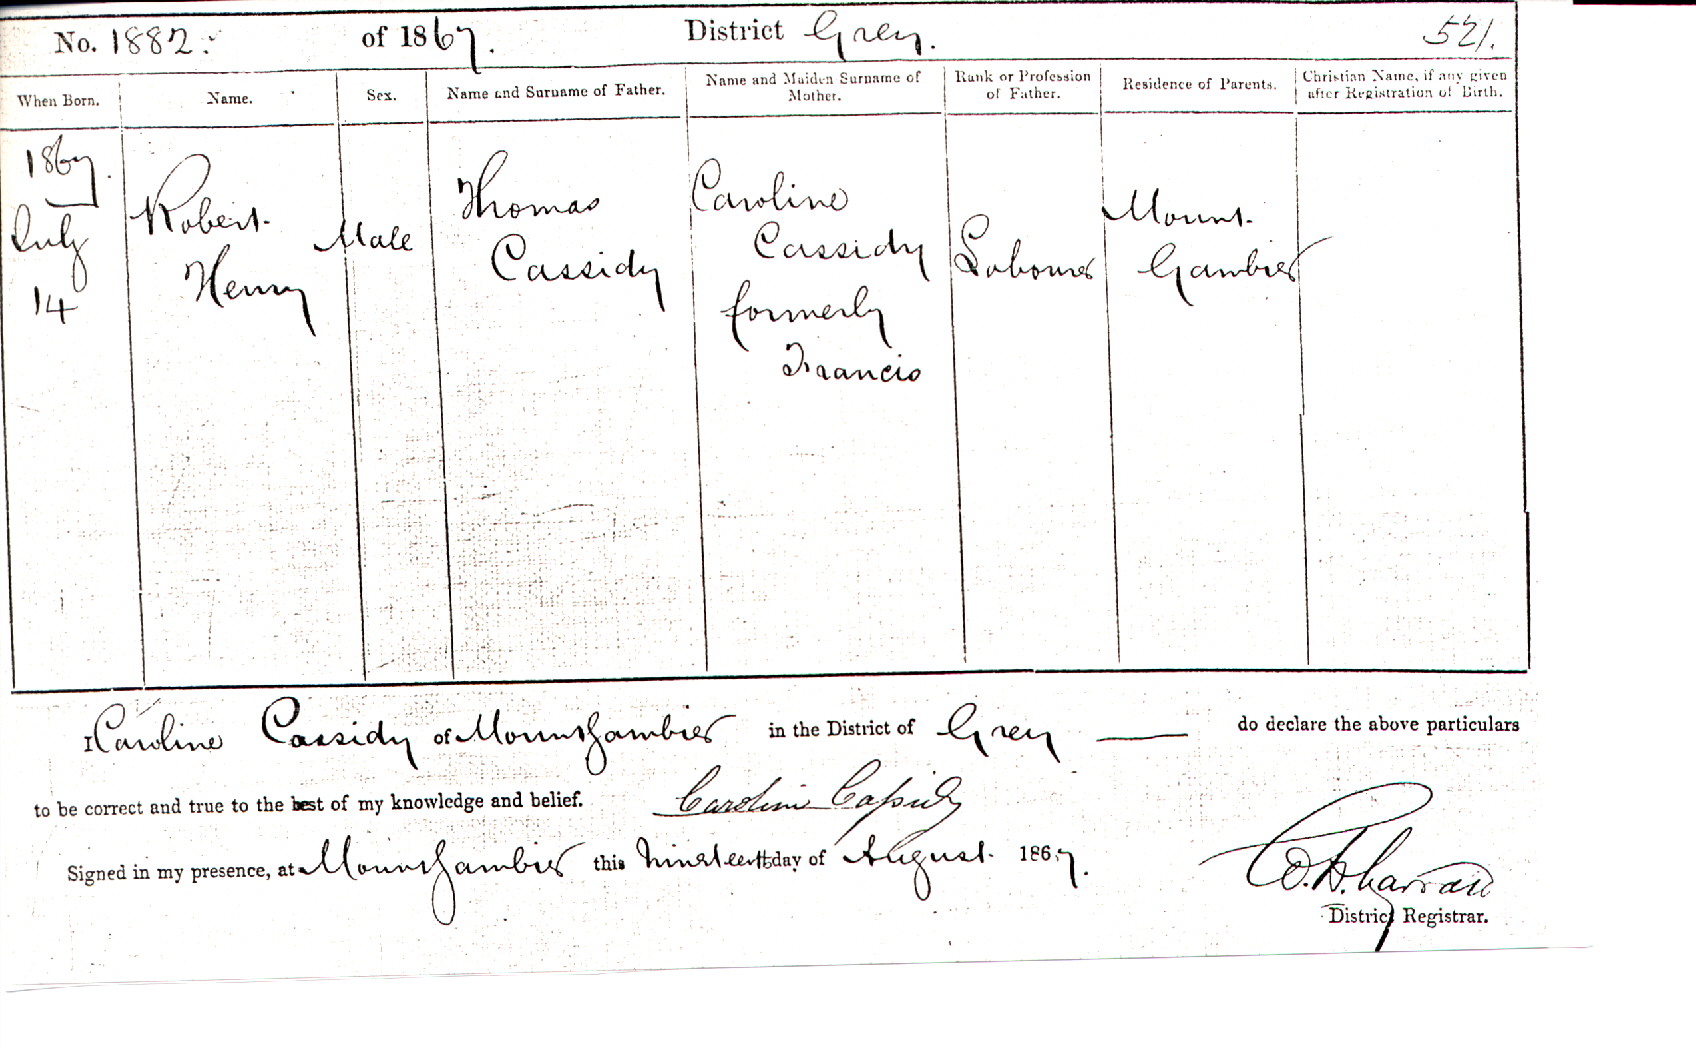 No. 1882. of 1867. District Grey. 521.
When Born. Name. Sex. Name and Surname of Father. Name and Maiden Surname of Mother. Rank or Profession of Father. Residence of Parents. Christian Name, if any given after Registration of Birth.
1867.
July
14
Robert
Henry
Male
Thomas
Cassidy
Caroline
Cassidy
formerly
Francis
Labourer
Mount
Gambier
I Caroline Cassidy of Mount Gambier in the District of Grey do declare the above particulars
to be correct and true to the best of my knowledge and belief. Caroline Cassidy
Signed in my presence, at Mount Gambier this Nineteenth day of August 1867.
District Registrar.